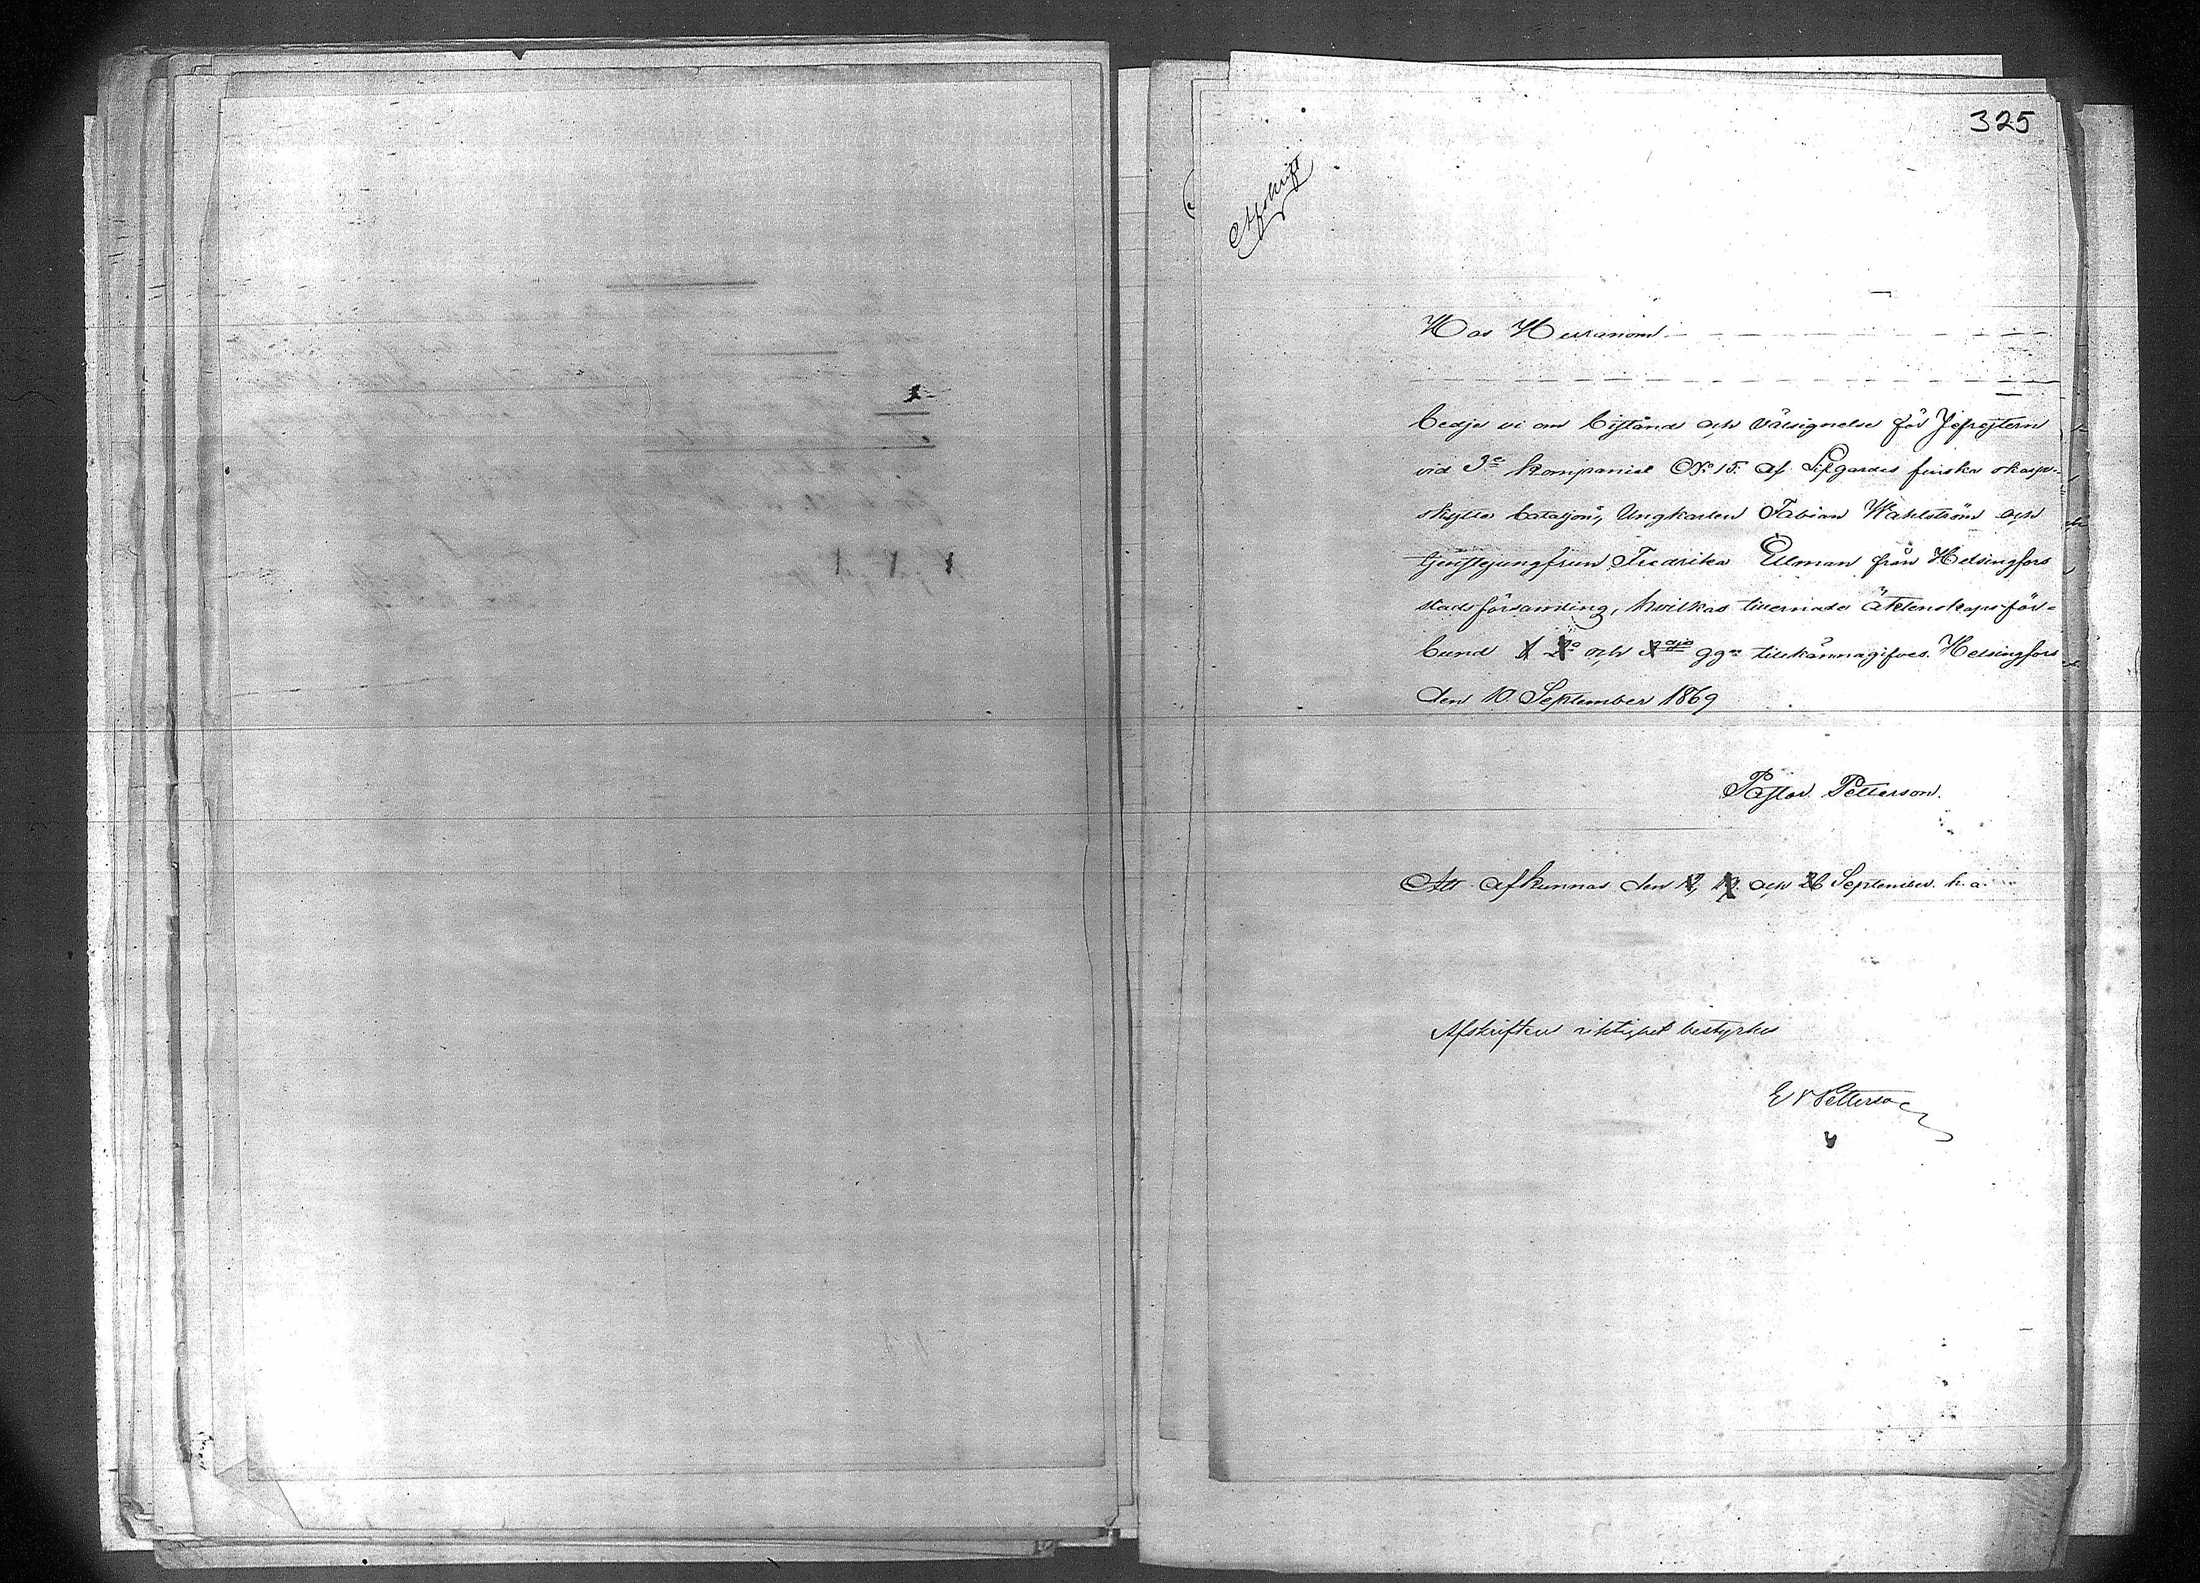 325
Afskrift
Hos Herranom
bedje vi om bistånd och välsignelse för Jefrejtern
vid 3e kompaniet No 15. af Lifgardes finska skarp-
skytte bataljon, Ungkarlen Fabian Wahlström och
tjenstejungfrun Fredrika Ullman från Helsingfors
stadsförsamling, hvilkas tillernade äktenskapsför-
bund 1 2o och 3dje ggn tillkännagifves. Helsingfors
den 10. September 1869
Pastor Petterson.
Att afkunnas den 12, 19 och 26 September h. a.
Afskriften riktighet bestyrkes
Petterson